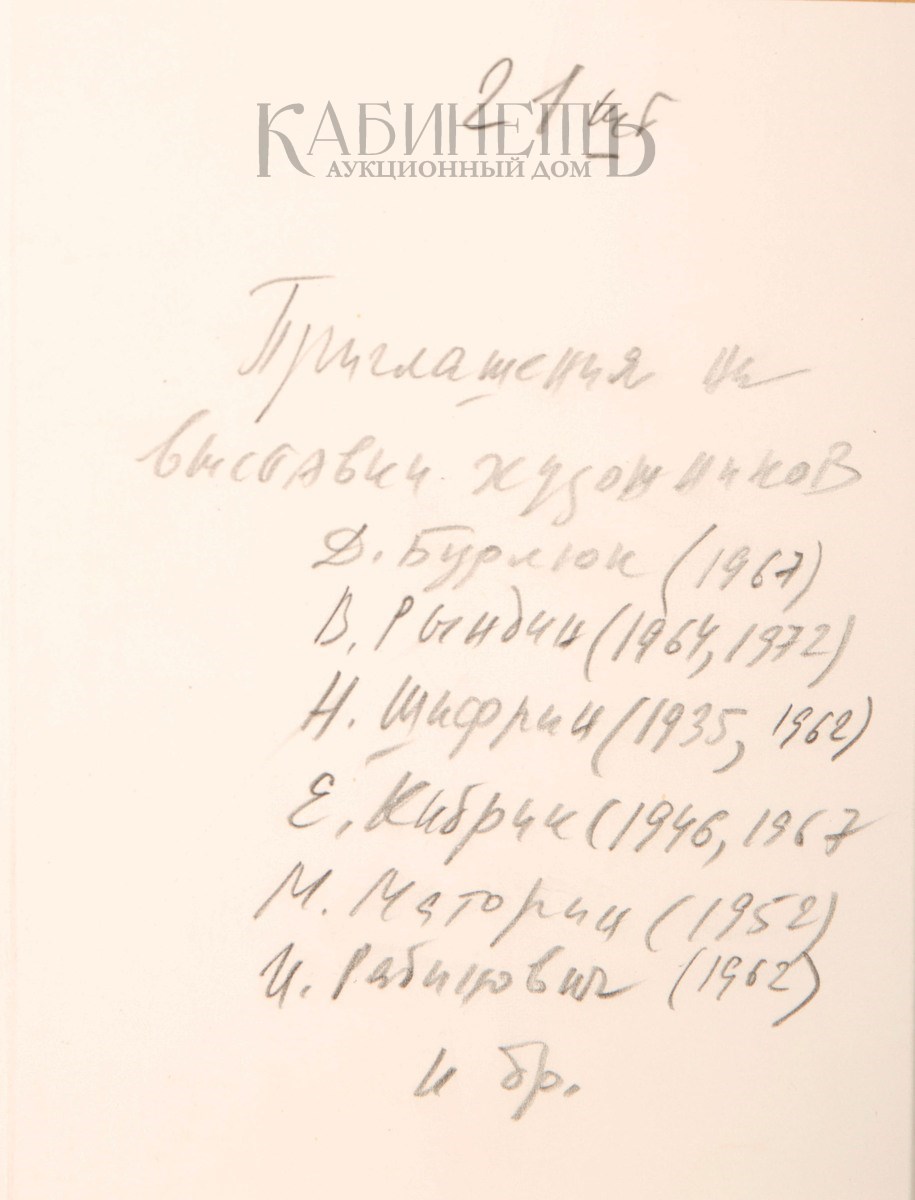 21 шт
КАБИНЕТЪ
АУКЦИОННЫЙ ДОМ
Приглашения на
выставки художников
Д. Бурлюк (1967)
В. Рындин (1964, 1972)
Н. Шифрин (1935, 1962)
Е. Кибрик (1946, 1967
М. Маторин (1952)
И. Рабинович (1962)
и др.